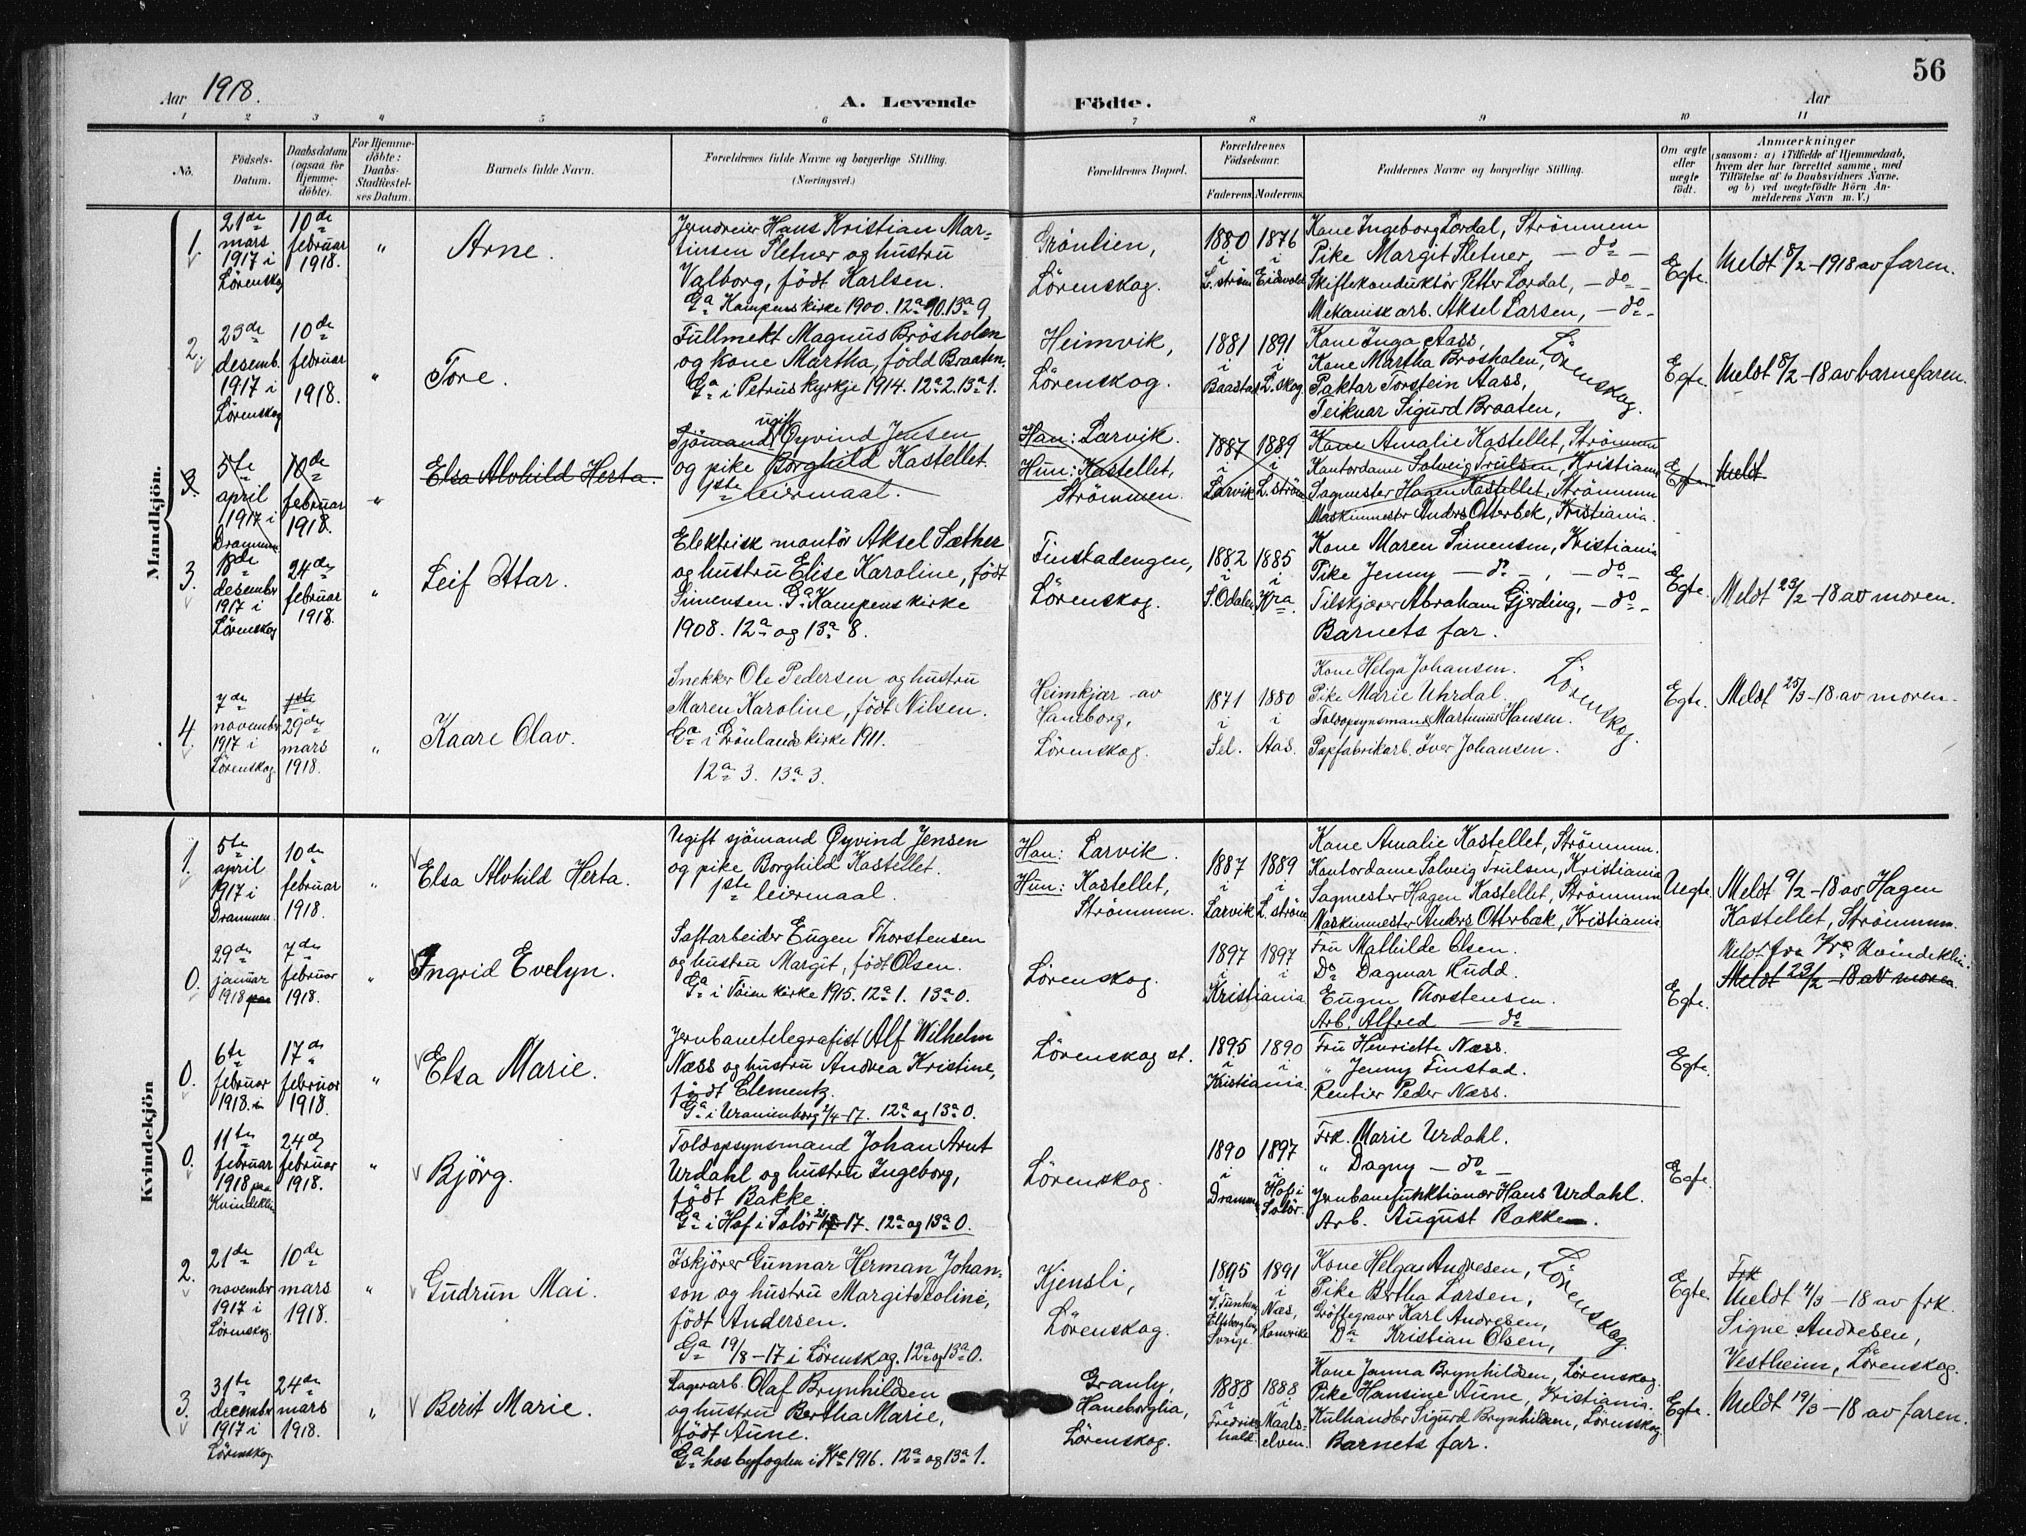 56
Aar 1918.
A. Levende Födte.
Aar
1 2 3 4 5 6 7 8 9 10 11
No.
Födsels-
Datum.
Daabsdatum
(ogsaa for
Hjemme-
döbte).
For Hjemme-
döbte:
Daabs-
Stadfæstel-
ses Datum.
Barnets fulde Navn.
Forældrenes fulde Navne og borgerlige Stilling.
(Næringsvei.)
Forældrenes Bopæl.
Forældrenes
Födselsaar.
Faderens Moderens
Faddernes Navne og borgerlige Stilling.
Om ægte
eller
uægte
födt.
Anmærkninger
(saasom: a) i Tilfælde af Hjemmedaab,
hvem der har forrettet samme, med
Tilföielse af to Daabsvidners Navne,
og b) ved uægtefödte Börn An-
melderens Navn m. V.)
Mandkjön.
1.
21de
mars
1917 i
Lörenskog
10de
februar
1918.
"
Arne.
Jerndreier Hans Kristian Mar-
tinsen Sletner og hustru
Valborg, födt Karlsen.
Ga Kampens kirke 1900. 12a 10. 13a 9.
Grönlien,
Lörenskog.
1880 1876
i i
L.ström Eidsvold
Kone Ingeborg Lordal, Strömmen
Pike Margit Sletner, — do —
Skiftekonduktör Petter Lordal, — do —
Mekanisk arb. Aksel Larsen, — do —
Egte.
Meldt 8/2 - 1918 av faren.
2.
23de
desemb.
1917 i
Lörenskog
10de
februar
1918.
"
Tore.
Fullmekt Magnus Brösholen
og kone Martha, född Braaten.
Ga i Petrus kyrkje 1914. 12a 2. 13a 1.
Heimvik,
Lörenskog.
1881 1891
i i
Baastad L.skog.
Kone Inga Aass,
Kone Martha Brosholen,
Paktar Torstein Aass,
Teiknar Sigurd Braaten,
Lörenskog.
Egte.
Meldt 8/2 - 18 av barnefaren.
3.
5te
april
1917 i
Drammen
10de
februar
1918.
"
Elsa Alvhild Herta.
ugift
Sjömand Öyvind Jensen
og pike Borghild Kastellet.
1ste leiermaal.
Han: Larvik.
Hun: Kastellet,
Strömmen.
1887 1889
i i
Larvik L.ström
Kone Amalie Kastellet, Strömmen
Kontordame Solveig Trulsen, Kristiania
Sagmester Hagen Kastellet, Strömmen
Maskinmester Anders Otterbek, Kristiania.
Egte
Meldt
3.
18de
desember
1917 i
Lörenskog
24de
februar
1918.
"
Leif Ottar.
Elektrisk montör Aksel Sæther
og hustru Elise Karoline, födt
Simensen. Ga Kampens kirke
1908. 12a og 13a 8.
Finstadengen,
Lörenskog.
1882 1885
i i
S.Odalen Kra.
Kone Maren Simensen, Kristiania
Pike Jenny — do —, — do —
Tilskjærer Abraham Gjerding, — do —
Barnets far.
Egte.
Meldt 23/2 - 18 av moren.
4.
7de
novembr
1917 i
Lörenskog
1ste
29de
mars
1918.
"
Kaare Olav.
Snekker Ole Pedersen og hustru
Maren Karoline, födt Nilsen.
Ga i Grönlands kirke 1911.
12a 3. 13a 3.
Heimkjær av
Haneborg,
Lörenskog.
1871 1880
i i
Sel. Aas.
Kone Helga Johansen.
Pike Marie Uhrdal.
Toldopsynsmand Martinius Hansen.
Papfabrikarb. Iver Johansen.
Lörenskog.
Egte.
Meldt 25/3 - 18 av moren.
Kvindekjön
1.
5te
april
1917 i
Drammen
10de
februar
1918.
"
Elsa Alvhild Herta.
Ugift sjömand Öyvind Jensen
og pike Borghild Kastellet.
1ste leiermaal.
Han: Larvik.
Hun: Kastellet,
Strömmen.
1887 1889
i i
Larvik L.ström
Kone Amalie Kastellet, Strömmen.
Kontordame Solveig Trulsen, Kristiania
Sagmester Hagen Kastellet, Strömmen
Maskinmester Anders Otterbæk, Kristiania
Uegte.
Meldt 9/2 - 18 av Hagen
Kastellet, Strömmen.
0.
29de
januar
1918 paa
7de
februar
1918.
"
Ingrid Evelyn.
Saftarbeider Eugen Thorstensen
og hustru Margit, födt Olsen.
Ga i Töien kirke 1915. 12a 1. 13a 0.
Lörenskog.
1897 1897
i i
Kristiania.
Fru Mathilde Olsen.
Do Dagmar Rudd.
Eugen Thorstensen.
Arb. Alfred — do —
Egte.
Meldt fra Kra Kvindeklin.
Meldt 23/2 - 18 av moren.
0.
6te
februar
1918 i
17de
februar
1918.
"
Elsa Marie.
Jernbanetelegrafist Alf Wilhelm
Næss og hustru Andrea Kristine,
födt Clementz.
Ga i Uranienborg 2/4 - 17. 12a og 13a 0.
Lörenskog st.
1895 1890
i i
Kristiania.
Fru Henriette Næss.
" Jenny Finstad.
Rentier Peder Næss.
Egte.
0.
11te
februar
1918 paa
Kvindeklin
24de
februar
1918.
"
Björg.
Toldopsynsmand Johan Arnt
Urdahl og hustru Ingeborg,
födt Bakke.
Ga i Hof i Solör - 17. 12a og 13a 0.
Lörenskog.
1890 1897
i i
Drammen Hof i
Solör.
Frk. Marie Urdahl.
" Dagny — do —
Jernbanefunktionær Hans Urdahl.
Arb. August Bakke.
Egte.
2.
21de
november
1917 i
Lörenskog.
10de
mars
1918.
"
Gudrun Mai.
Iskjörer Gunnar Herman Johan-
son og hustru Margit Teoline,
födt Andersen.
Ga 19/8 - 17 i Lörenskog. 12a og 13a 0.
Kjensli,
Lörenskog.
1895 1891
i i
Elfsborglen Næs,
Sverige. Romerike
Kone Helga Andresen,
Pike Bertha Larsen,
Gröftegraver Karl Andresen,
Do Kristian Olsen,
Lörenskog.
Egte.
Frk
Meldt 4/3 - 18 av frk.
Signe Andresen,
Vestheim, Lörenskog.
3.
31te
december
1917 i
Lörenskog
24de
mars
1918.
"
Berit Marie.
Lagerarb. Olaf Brynhildsen
og hustru Bertha Marie,
födt Aune.
Ga hos byfogden i Kra 1916. 12a og 13a 1.
Granly,
Haneborglia,
Lörenskog.
1888 1888
i i
Fredriks- Maals-
hald. elven.
Kone Janna Brynhildsen, Lörenskog.
Pike Hansine Aune, Kristiania.
Kulhandler Sigurd Brynhildsen, Lörenskog
Barnets far.
Egte.
Meldt 19/3 - 18 av faren.